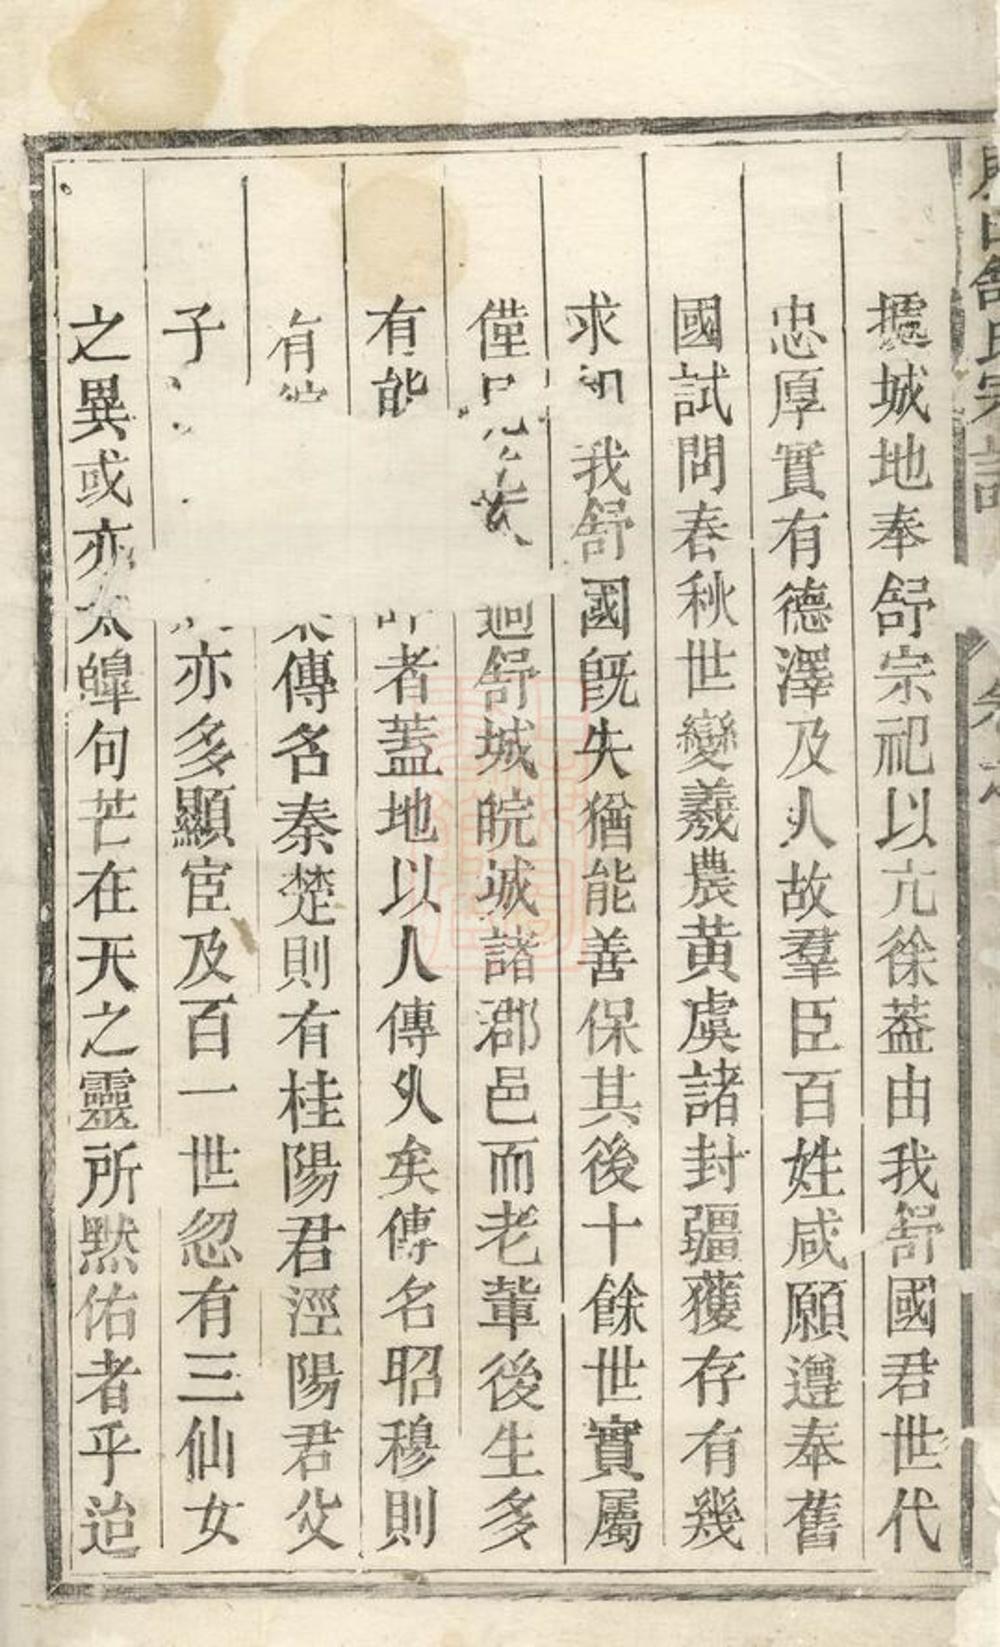 據城地奉舒宗祀以亢徐葢由我舒國君世代
忠厚實有德澤及人故羣臣百姓咸願遵奉舊
國試問春秋世變羲農黄虞諸封疆獲存有幾
求 我舒國旣失猶能善保其後十餘世實屬
僅 迴舒城皖城諸郡邑而老輩後生多
有能 者蓋地以人傳久矣傳名昭穆則
有 傳名秦楚則有桂陽君涇陽君父
子 亦多顯宦及百一世忽有三仙女
之異或亦太皡句芒在天之靈所默佑者乎迨
舒氏宗譜